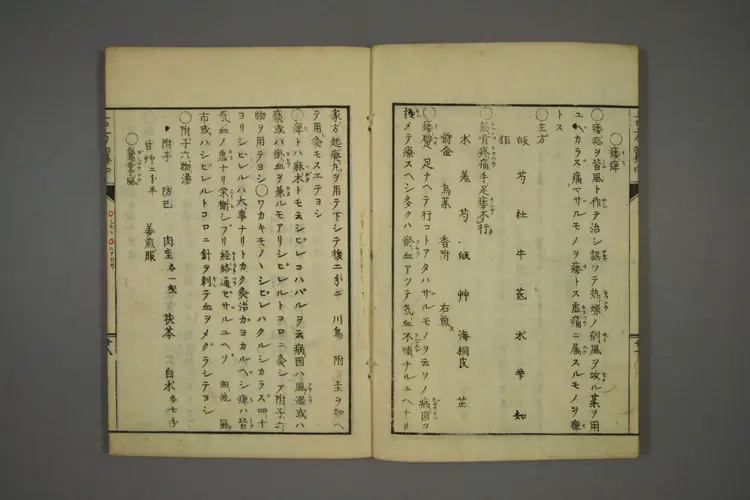 ○痿痺
○痿症ヲ皆風ト作テ治シ誤ツテ熱燥ノ剤風ヲ攻ル薬ヲ用
ユヘカラス痛マサルモノヲ痿トス虚痛ニ属スルモノヲ痺
トス
○主方
芍 杜 牛 芪 朮 芐 知
○筋骨疼痛手足痿不行
朮 羌 芍 艸 海桐皮 芷
欝金 烏薬 香附 右煎
○痿躄 足ナヘテ行コトアタハサルモノヲ云ソノ病因ヲ
メテ療スヘシ多クハ瘀血アツテ気血不順ナルユヘナリ
家方起癈丸ヲ用テ下シテ後二分ニ 川烏 附 圭ヲ加ヘ
テ用灸モスエテヨシ
○痺トハ麻木トモ云シビレコハバルヲ云病因ハ風湿或ハ
痰或ハ瘀血ヲ兼ルモアリシビレルトコロニ灸シテ附子六
物ヲ用テヨシ○ワカキモノヽシビレハクルシカラス四十
ヨリシビレルハ大事ナリトカク灸治カヨカルヘシ痺ハ皆
気血ノ虚ナリ栄衛シブリ経絡通セサルユヘゾ 曲池 風
市或ハシビレルトコロニ針ヲ刺テ血ヲメグラシテヨシ
○附子六物湯
附子 防已 肉圭各一 茯苓 白朮各七分
甘艸二分半 姜煎服
○鶴膝風